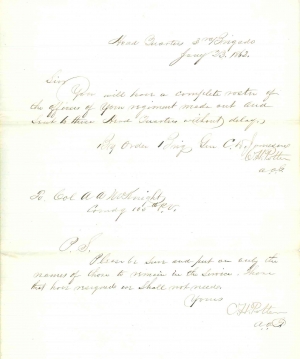 Head Quarters 3rd Brigade
Jany 23, 1862.
Sir
You will have a complete roster of
the officers of your regiment made out and
sent to these Head Quarters without delay
By Order Brig. Gen. C. D. Jameson
C. H. Potter
A.G.
To Col A A McKnight
Comdg 105th P.V.
P.S.
Please be sure and put on only the
names of those to remain in the Service. Those
that have resigned or shall not
Yours
C H Potter